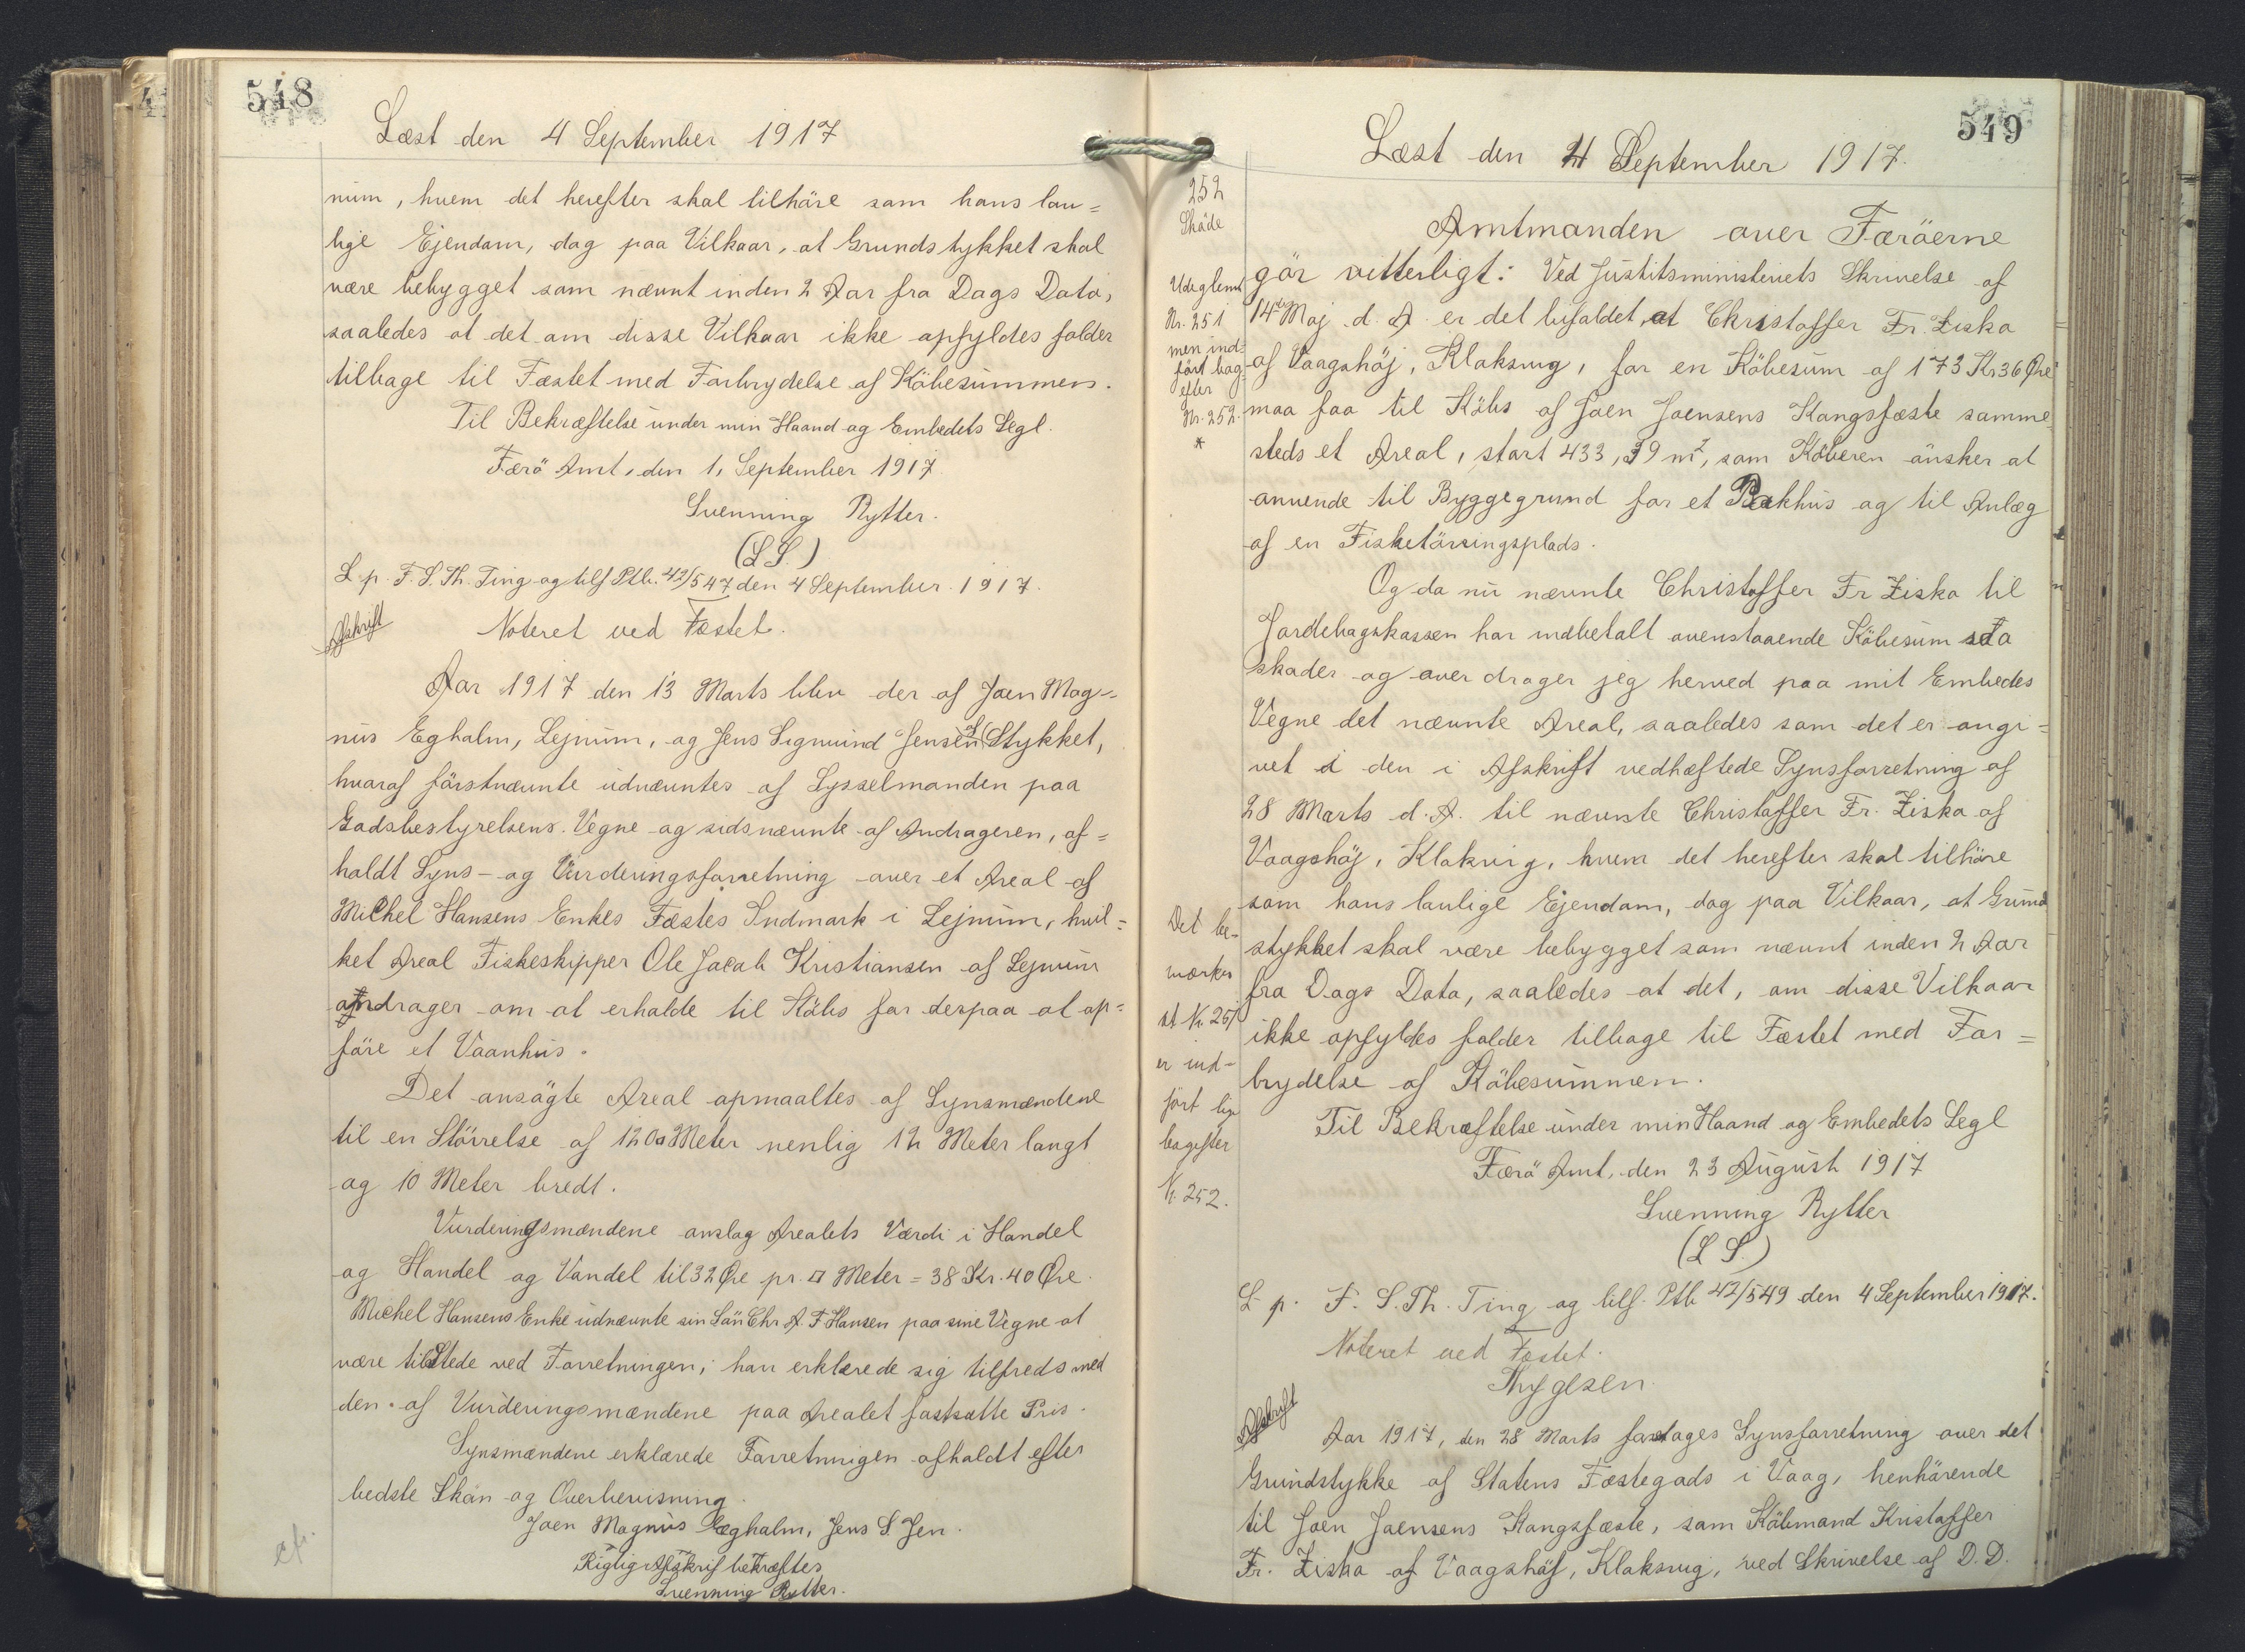 548
Læst den 4 September 1917
num, hvem det herefter skal tilhøre som hans lov=
lige Ejendom, dog paa Vilkaar, at Grundstykket skal
være bebygget som nævnt inden 2 Aar fra Dags Dato,
saaledes at det om disse Vilkaar ikke opfyldes falder
tilbage til Fæstet med Forbrydelse af Købesummen.
Til Bekræftelse under min Haand og Embedets Segl.
Færö Amt, den 1, September 1917
Svenning Rytter.
(L S.)
L. p. F. S. Th. Ting og tilf Ptb. 42/547 den 4 September 1917.
Afskrift
Noteret ved Fæstet.
Aar 1917 den 13 Marts blev der af Joen Mag=
nus Egholm, Lejnum, og Jens Sigmund Jensen af Stykket,
hvoraf förstnævnte udnævntes af Sysselmanden paa
Godsbestyrelsens Vegne og sidsnævnte af Andrageren, af=
holdt Syns- og Vurderingsforretning over et Areal af
Michel Hansens Enkes Fæstes Indmark i Lejnum, hvil=
ket Areal Fiskeskipper Ole Jacob Kristiansen af Lejnum
andrager om at erholde til Købs for derpaa at op=
føre et Vaanhus.
Det ansøgte Areal opmaaltes af Synsmændene
til en Størrelse af 120 □ Meter nemlig 12 Meter langt
og 10 Meter bredt.
Vurderingsmændene anslog Arealets Værdi i Handel
og Handel og Vandel til 32 Øre pr. □ Meter = 38 Kr. 40 Øre.
Michel Hansens Enke udnævnte sin Sön Chr A. F Hansen paa sine Vegne at
være tilstede ved Forretningen; han erklærede sig tilfreds med
den af Vurderingsmændene paa Arealet fastsatte Pris.
Synsmændene erklærede Forretningen afholdt efter
bedste Skøn og Overbevisning
Joen Magnus Egholm, Jens S. Jen.
Rigtig Afskrif bekræftes
Svenning Rytter.
cfr.
549
Læst den 4 September 1917.
252
Skøde
Udeglemt
Nr. 251
men ind=
ført bag-
efter
Nr. 252.
*
Amtmanden over Færøerne
gör vitterligt: Ved Justitsministeriets Skrivelse af
14de Maj d. A. er det bifaldet, at Christoffer Fr. Ziska
af Vaagshøj, Klaksvig, for en Købesum af 173 Kr 36 Øre
maa faa til Købs af Joen Joensens Kongsfæste samme
steds et Areal, stort 433,39 m2, som Køberen ønsker at
anvende til Byggegrund for et Pakhus og til Anlæg
af en Fisketørringsplads.
Og da nu nævnte Christoffer Fr Ziska til
Jordebogskassen har indbetalt ovenstaaende Købesum saa
skøder og over drager jeg herved paa mit Embedes
Vegne det nævnte Areal, saaledes som det er angi=
vet i den i Afskrift vedhæftede Synsforretning af
28 Marts d. A. til nævnte Christoffer Fr. Ziska af
Vaagshøj, Klaksvig, hvem det herefter skal tilhøre
som hans lovlige Ejendom, dog paa Vilkaar, at Grund
stykket skal være bebygget som nævnt inden 2 Aar
fra Dags Dato, saaledes at det, om disse Vilkaar
ikke opfyldes falder tilbage til Fæstet med For=
brydelse af Købesummen.
Det be-
mærkes
at Nr. 251
er ind-
ført lige
bagefter
Nr. 252.
Til Bekræftelse under min Haand og Embedets Segl
Færö Amt, den 23 August 1917
Svenning Rytter
(L S.)
L p. F. S. Th. Ting og tilf. Ptb 42/549 den 4 September 1917.
Noteret ved Fæstet.
Thygesen.
Afskrift
Aar 1917, den 28 Marts foretages Synsforretning over det
Grundstykke af Statens Fæstegods i Vaag, henhørende
til Joen Joensens Kongsfæste, som Købmand Kristoffer
Fr. Ziska af Vaagshøj, Klaksvig, ved Skrivelse af D. D.